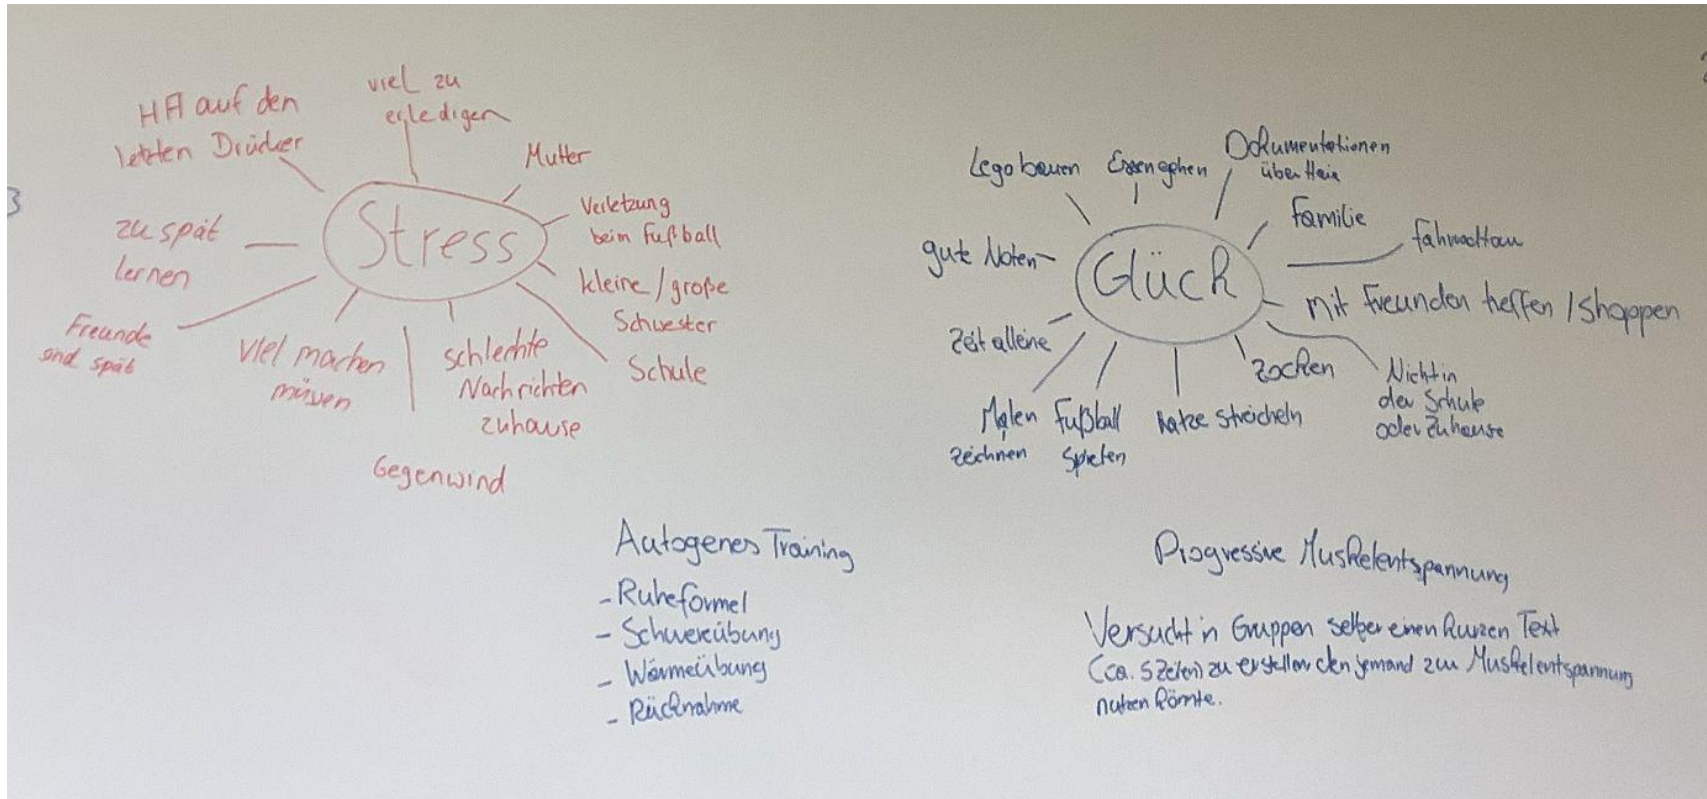 HA auf den
letzten Drücker
viel zu
erledigen
Mutter
Verletzung
beim Fußball
kleine / große
Schwester
Schule
schlechte
Nachrichten
zuhause
Gegenwind
viel machen
müssen
Freunde
sind spät
zu spät
lernen
Stress
Lego bauen
Essen gehen
Dokumentationen
über Haie
Familie
mit Freunden treffen / Shoppen
Nicht in
der Schule
oder zuhause
zocken
Katze streicheln
Fußball
spielen
Malen
zeichnen
Zeit alleine
gute Noten
Glück
Autogenes Training
- Ruheformel
- Schwereübung
- Wärmeübung
- Rücknahme
Progressive Muskelentspannung
Versucht in Gruppen selber einen kurzen Text
(ca. 5 Zeilen) zu erstellen den jemand zur Muskelentspannung
nutzen könnte.